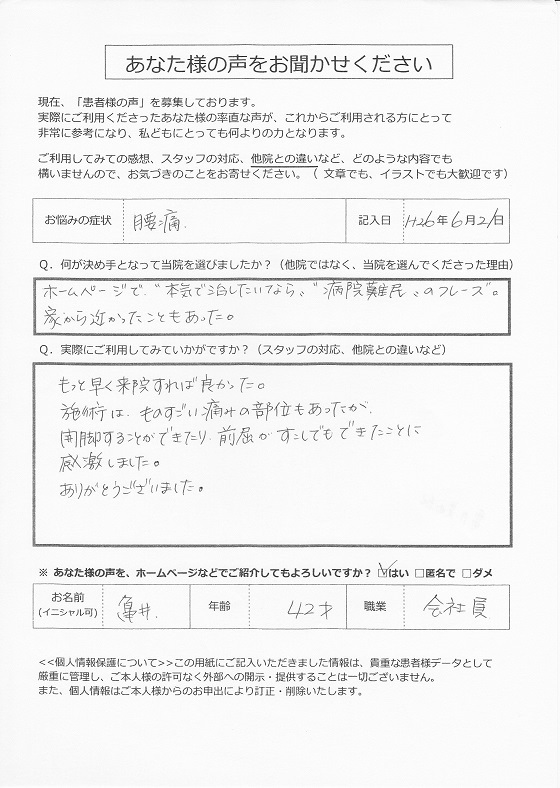 あなた様の声をお聞かせください
現在、「患者様の声」を募集しております。
実際にご利用くださったあなた様の率直な声が、これからご利用される方にとって
非常に参考になり、私どもにとっても何よりの力となります。
ご利用してみての感想、スタッフの対応、他院との違いなど、どのような内容でも
構いませんので、お気づきのことをお寄せください。（ 文章でも、イラストでも大歓迎です）
お悩みの症状 腰痛. 記入日 H26年6月21日
Q．何が決め手となって当院を選びましたか？（他院ではなく、当院を選んでくださった理由）
ホームページで、"本気で治したいなら、""病院難民"のフレーズ。
家から近かったこともあった。
Q．実際にご利用してみていかがですか？（スタッフの対応、他院との違いなど）
もっと早く来院すれば良かった。
施術は、ものすごい痛みの部位もあったが、
開脚することができたり、前屈がすこしでもできたことに
感激しました。
ありがとうございました。
※ あなた様の声を、ホームページなどでご紹介してもよろしいですか？ ☑はい □匿名で □ダメ
お名前 (イニシャル可) 亀井. 年齢 42才 職業 会社員
<<個人情報保護について>>この用紙にご記入いただきました情報は、貴重な患者様データとして
厳重に管理し、ご本人様の許可なく外部への開示・提供することは一切ございません。
また、個人情報はご本人様からのお申出により訂正・削除いたします。